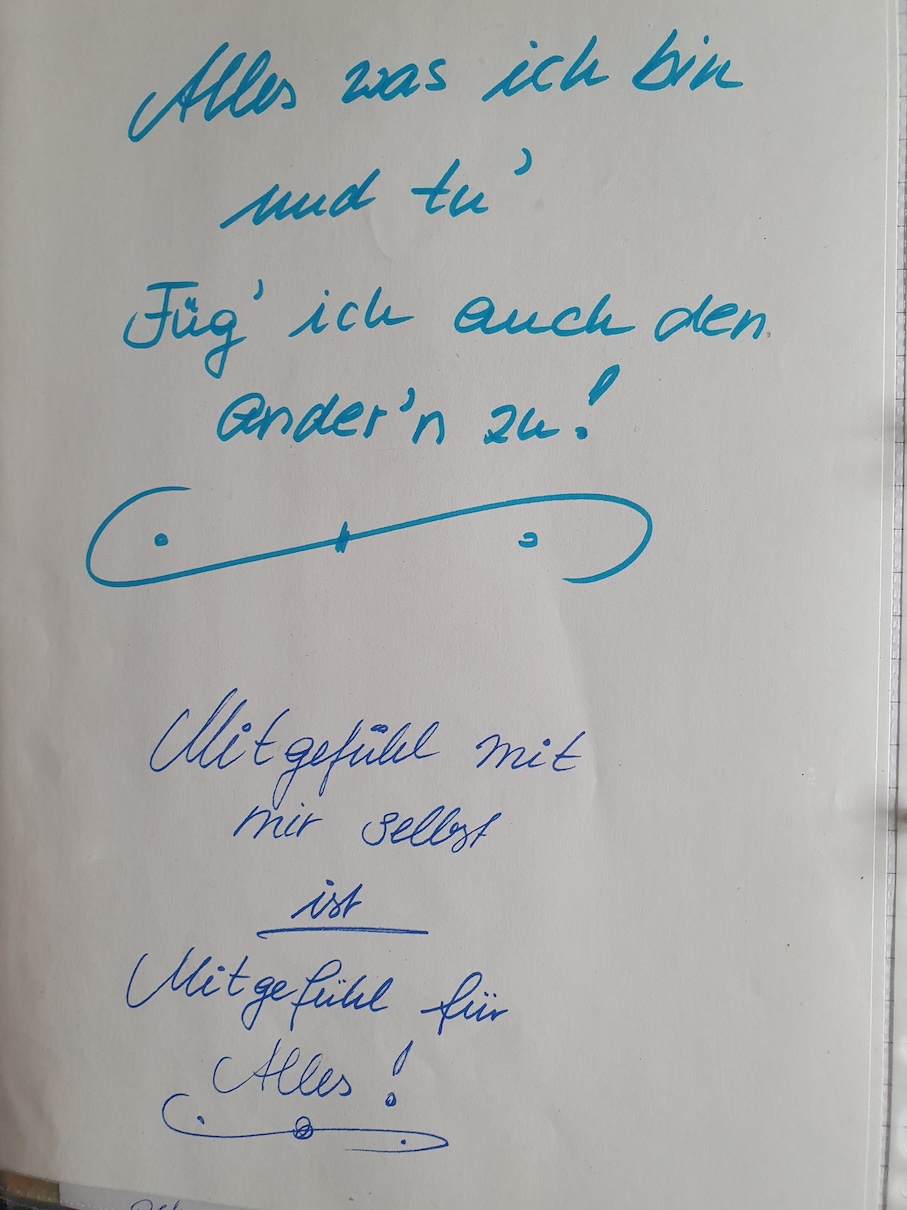 Alles was ich bin
und tu'
Füg' ich auch den
ander'n zu!
Mitgefühl mit
mir selbst
ist
Mitgefühl für
Alles!